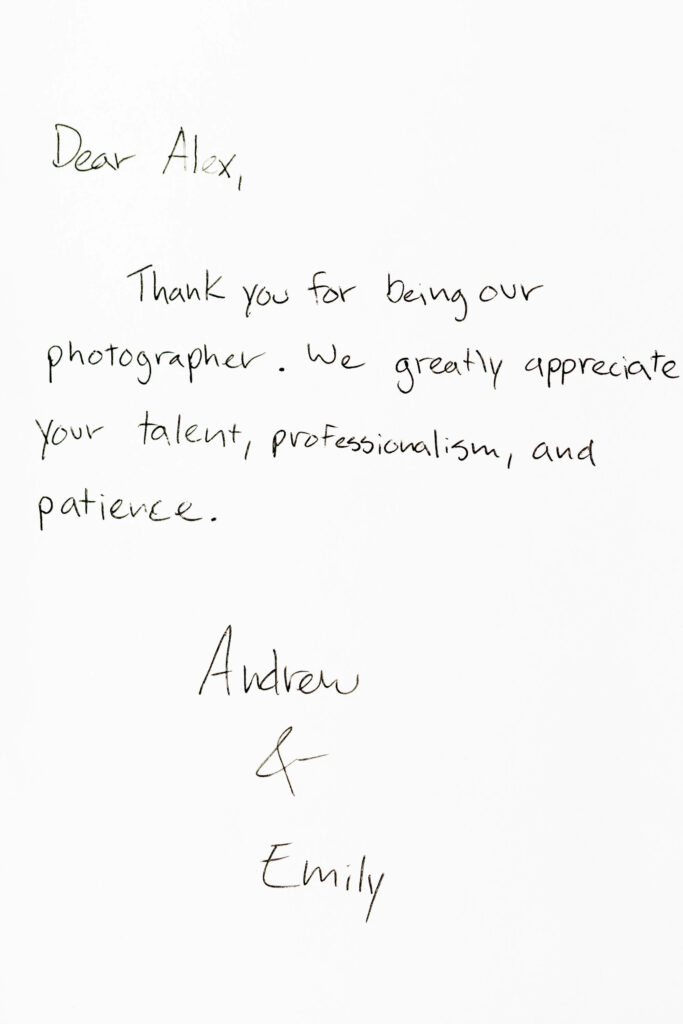 Dear Alex,
Thank you for being our
photographer. We greatly appreciate
your talent, professionalism, and
patience.
Andrew
&
Emily